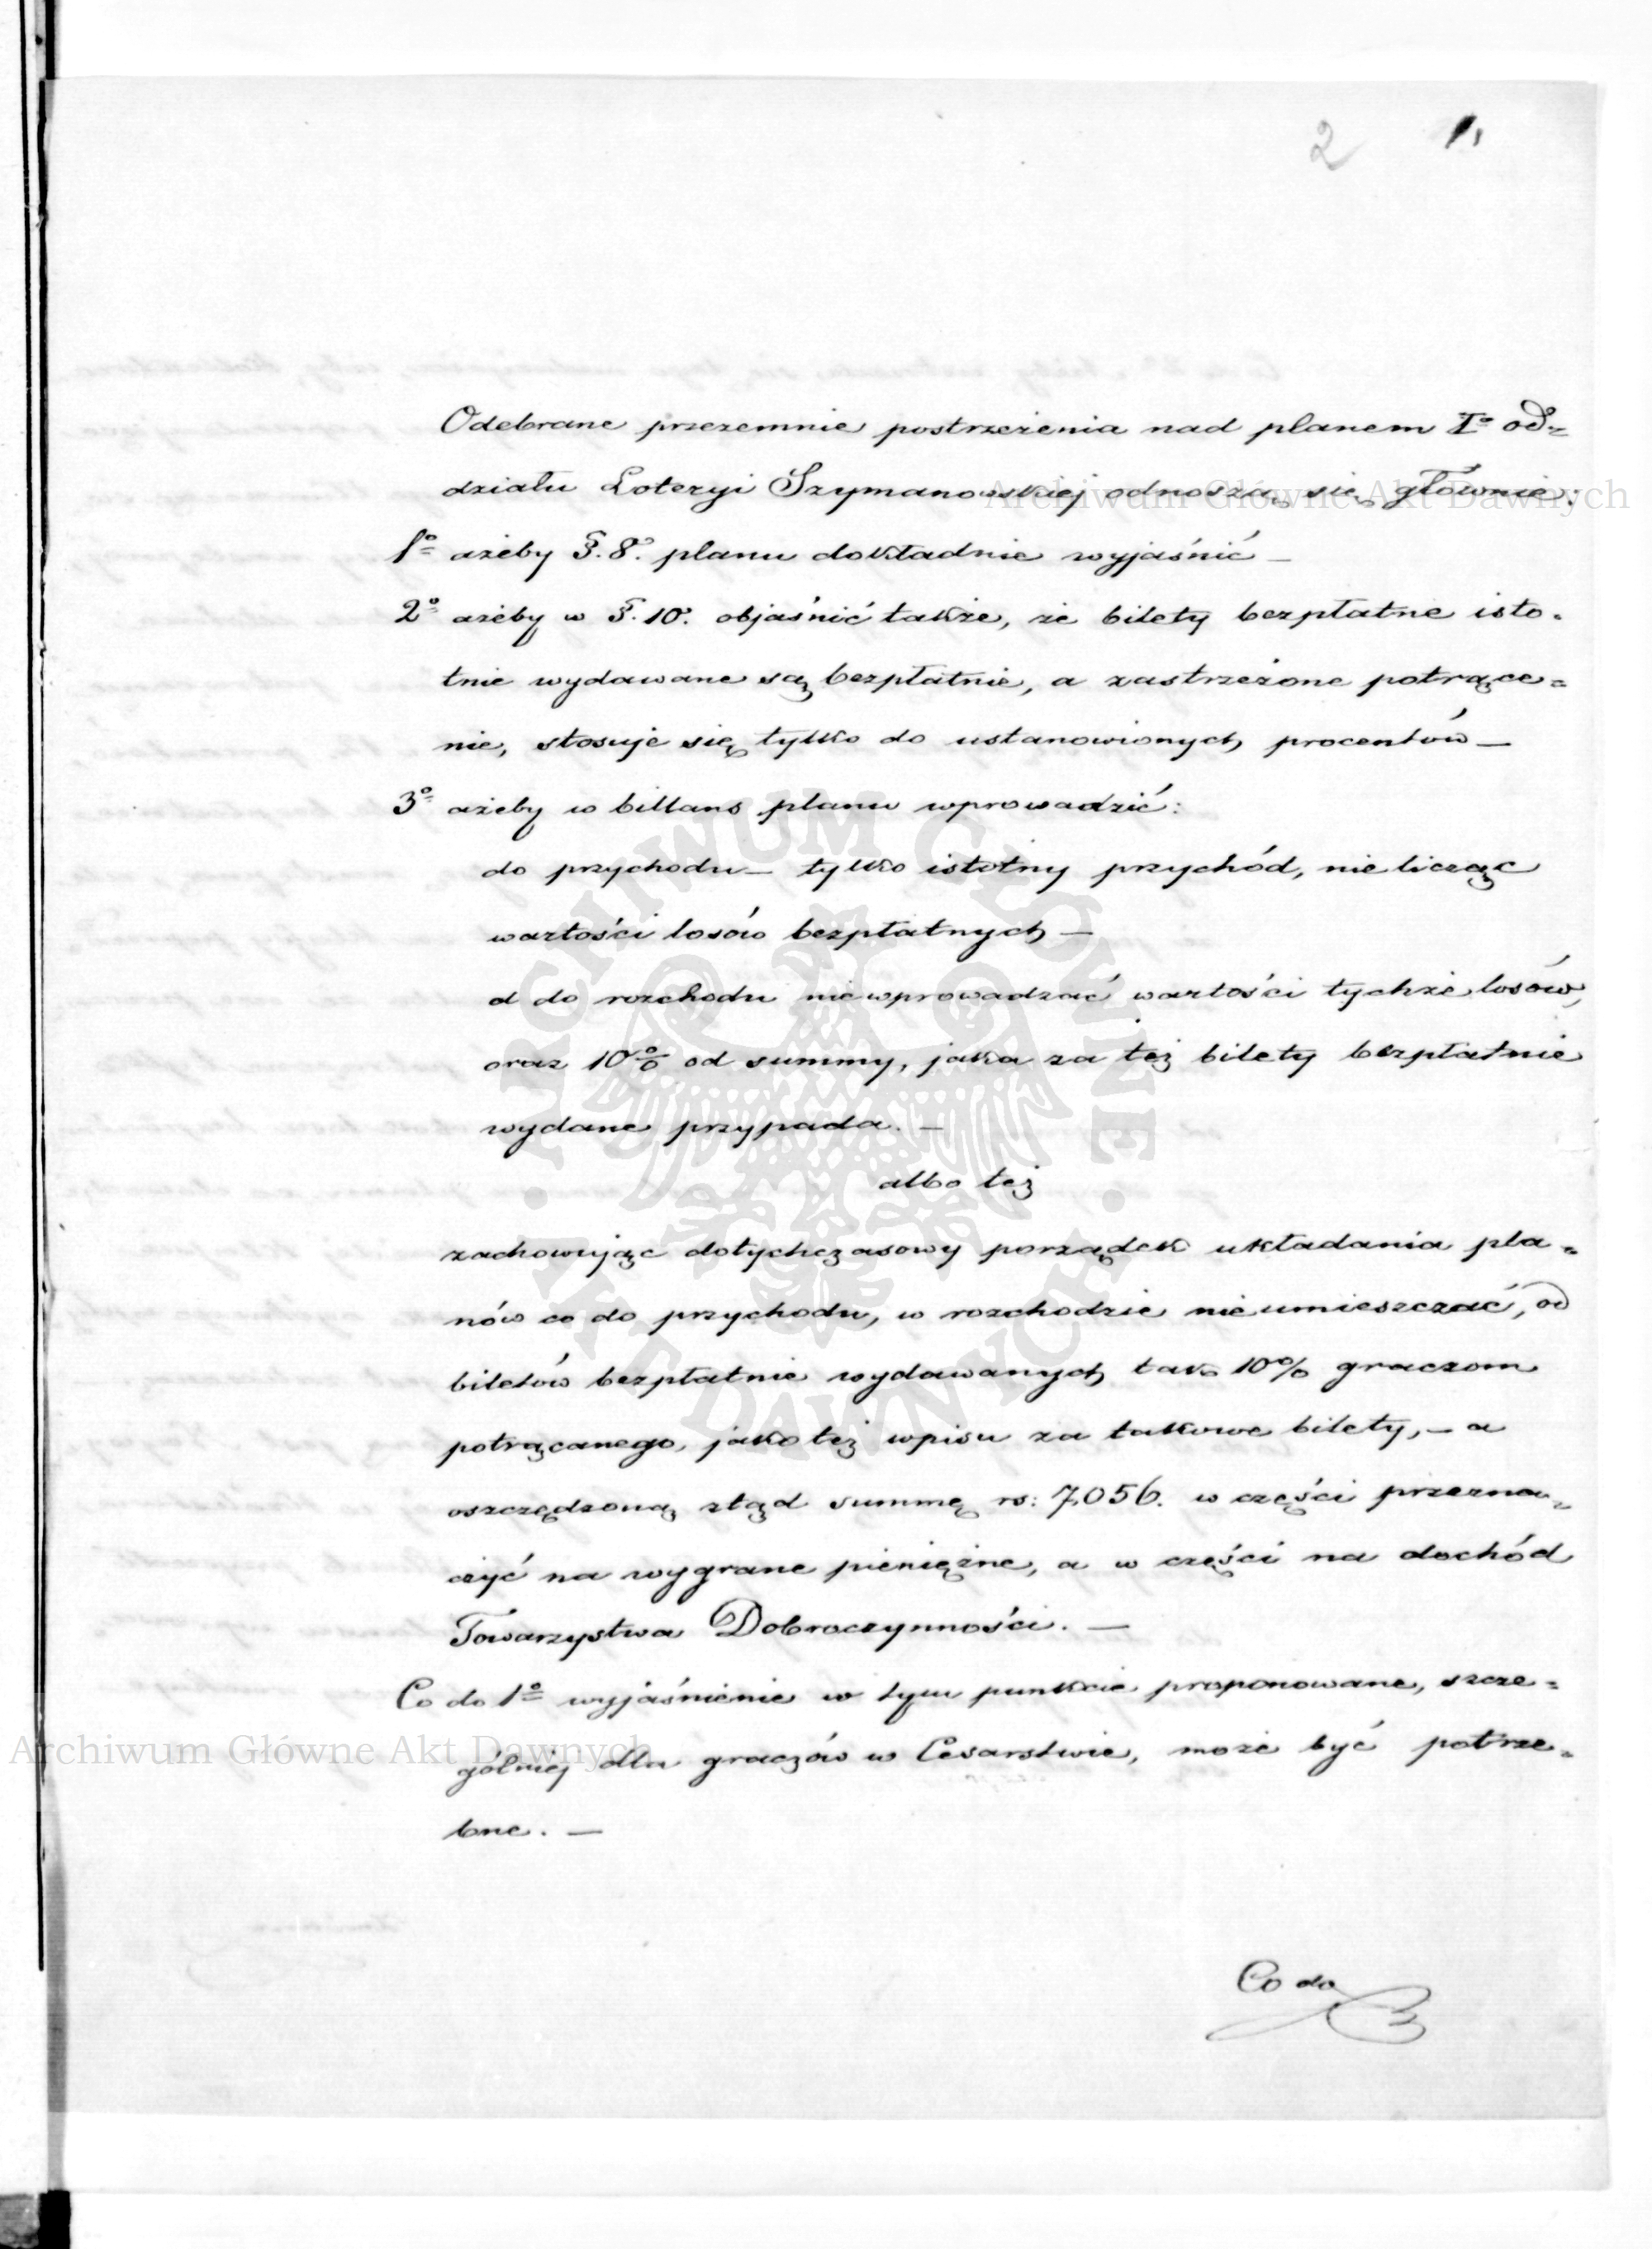 2 1,
Odebrane przezemnie postrzeżenia nad planem Iº od=
działu Loteryi Szymanowskiej odnoszą się głównie:
1º ażeby §. 8º. planu dokładnie wyjaśnić –
2º ażeby w §. 10º. objaśnić także, że bilety bezpłatne isto-
tnie wydawane są bezpłatnie, a zastrzeżone potrące=
nie, stosuje się tylko do ustanowionych procentów –
3º ażeby w billans planu wprowadzić:
do przychodu – tylko istotny przychód, nie licząc
wartości losów bezpłatnych –
a do rozchodu nie wprowadzać wartości tychże losów,
oraz 10% od summy, jaka za też bilety bezpłatnie
wydane przypada. –
albo też
zachowując dotychczasowy porządek układania pla=
nów co do przychodu, w rozchodzie nie umieszczać, od
biletów bezpłatnie wydawanych tak 10% graczom
potrącanego, jako też wpisu za takowe bilety, – a
oszczędzoną ztąd summę rs: 7,056. w części przezna=
czyć na wygrane pieniężne, a w części na dochód
Towarzystwa Dobroczynności. –
Co do 1º wyjaśnienie w tym punkcie proponowane, szcze=
gólniej dla graczów w Cesarstwie, może być potrze=
bne. –
Co do
Archiwum Główne Akt Dawnych
Archiwum Główne Akt Dawnych
ARCHIWUM GŁÓWNE AKT DAWNYCH